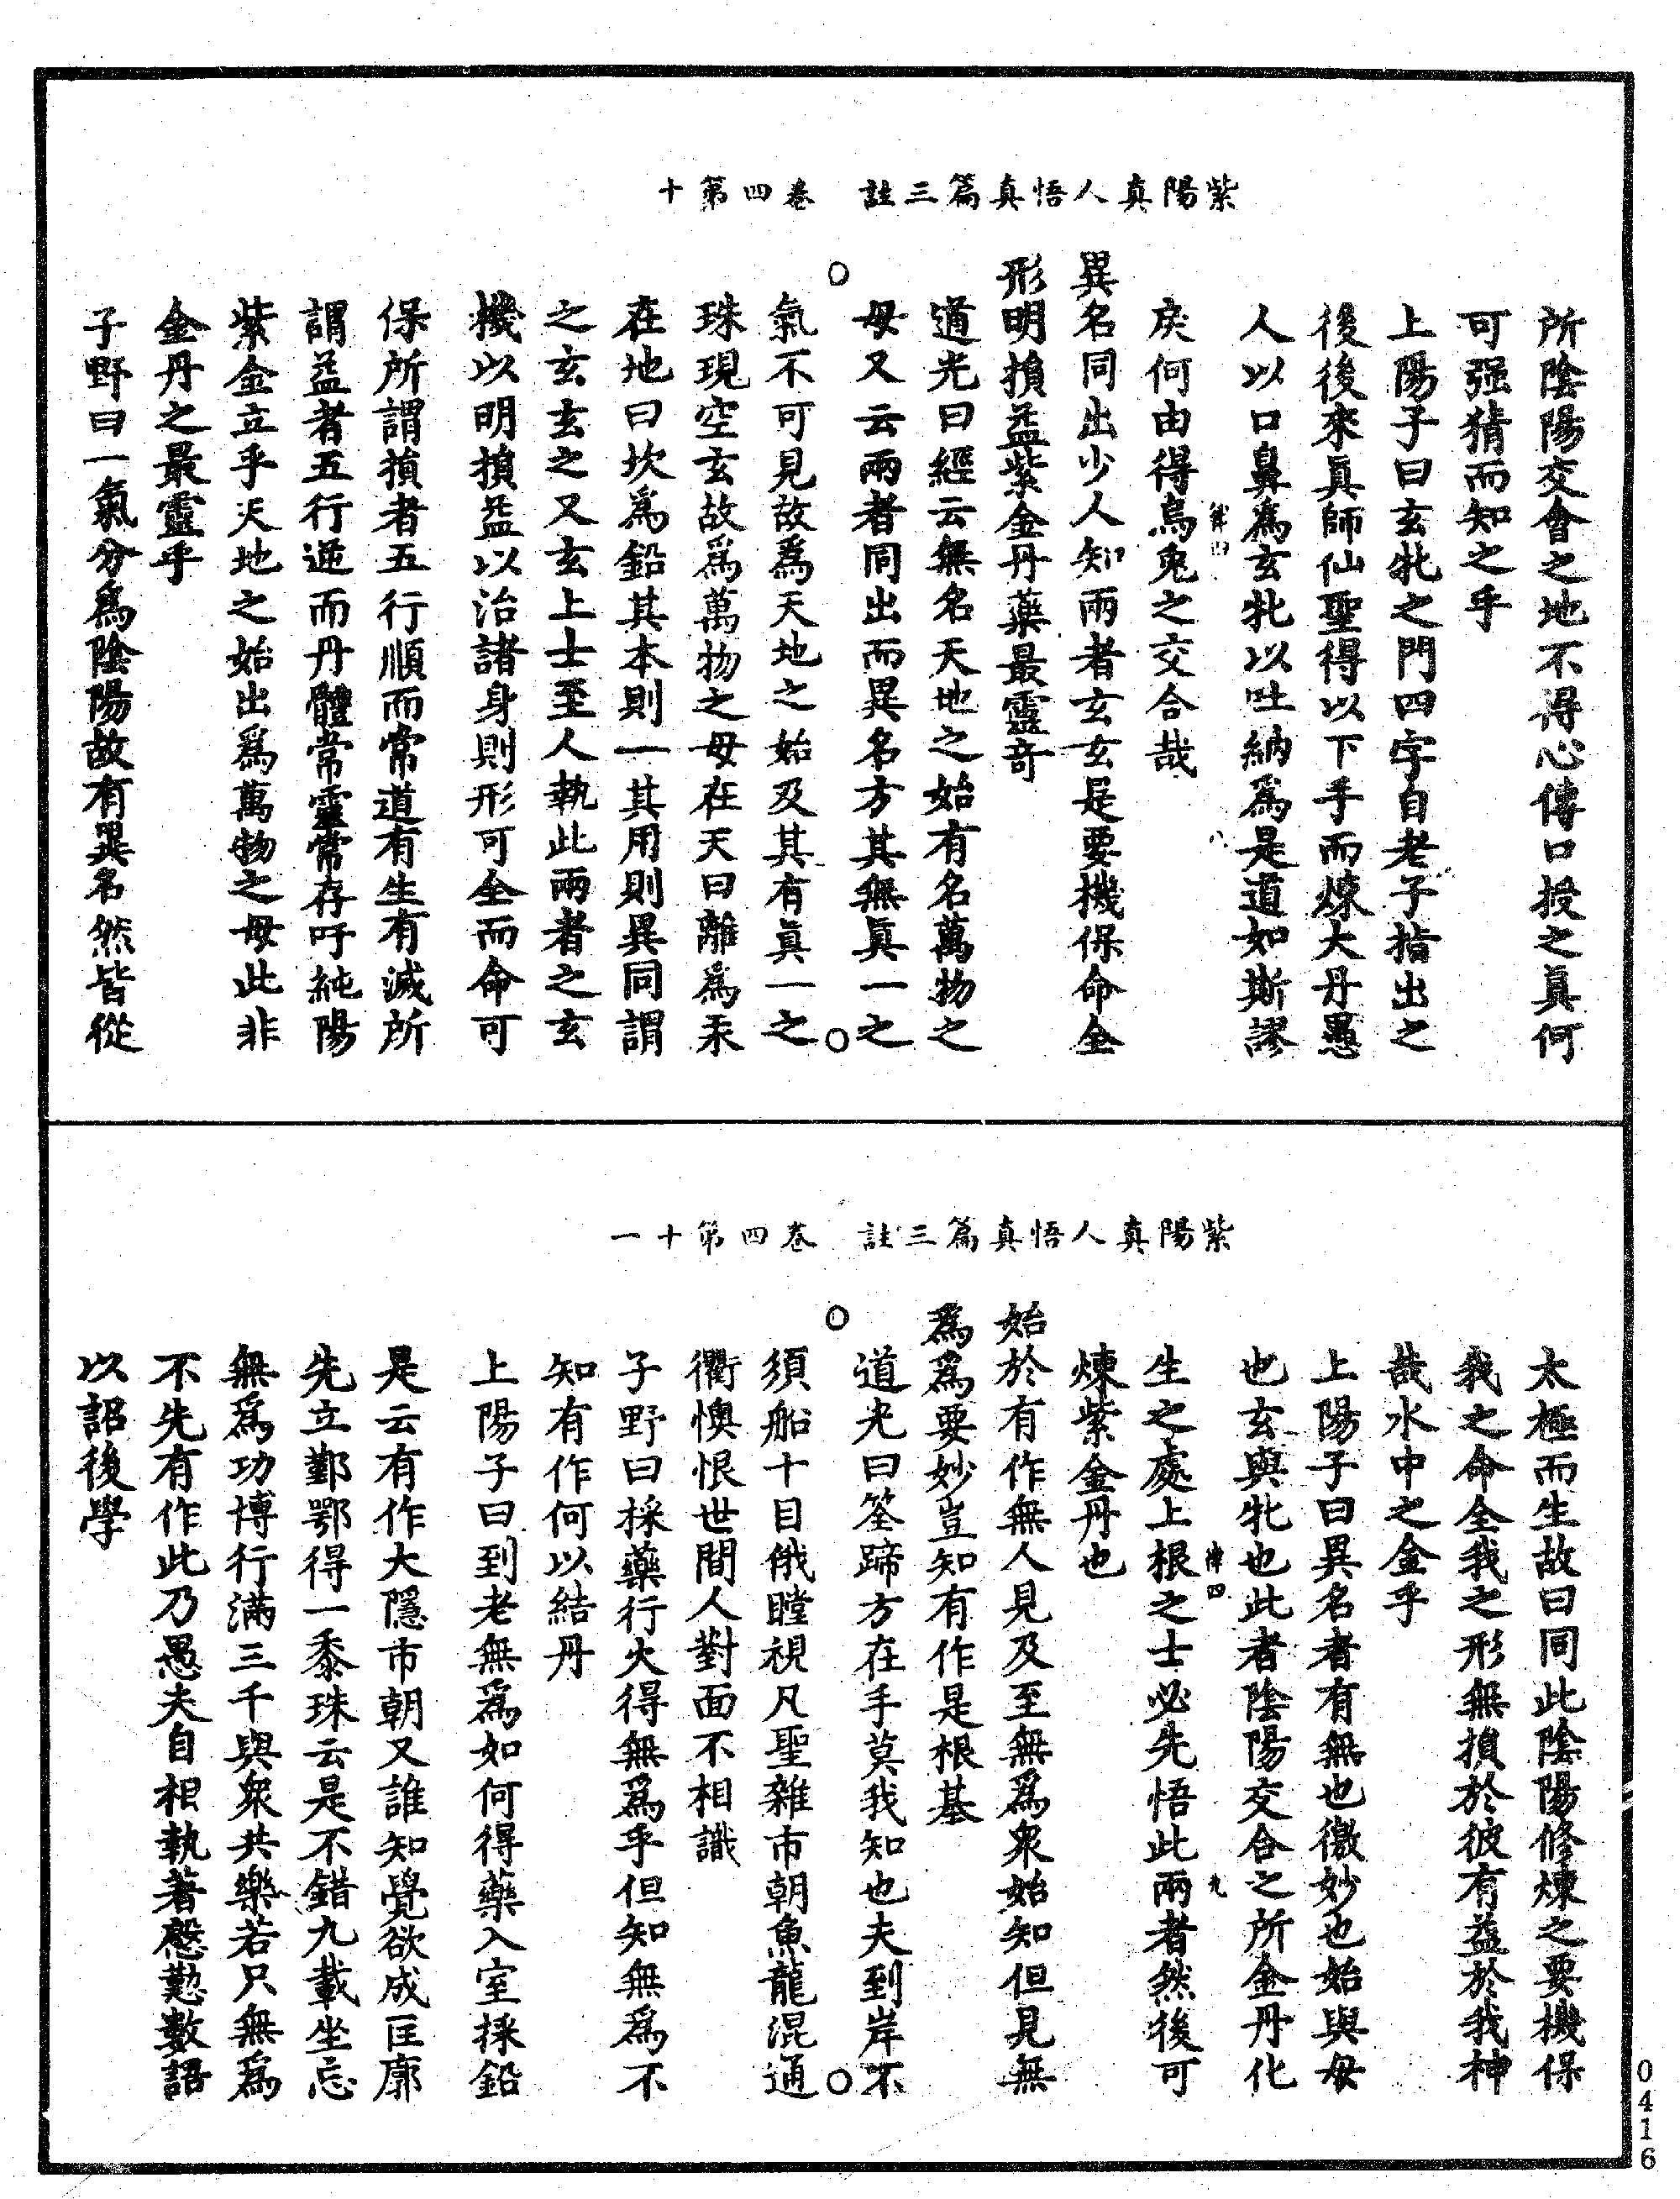 紫陽真人悟真篇三註　卷四第十
所陰陽交會之地不得心傳口授之眞何
可强猜而知之乎
上陽子曰玄牝之門四字自老子指出之
後後來眞師仙聖得以下手而煉大丹愚
人以口鼻爲玄牝以吐納爲是道如斯謬
戾何由得烏兔之交合哉
異名同出少人知兩者玄玄是要機保命全
形明損益紫金丹藥最靈奇
道光曰經云無名天地之始有名萬物之
母又云兩者同出而異名方其無眞一之
氣不可見故爲天地之始及其有眞一之
珠現空玄故爲萬物之母在天曰離爲汞
在地曰坎爲鉛其本則一其用則異同謂
之玄玄之又玄上士至人執此兩者之玄
機以明損益以治諸身則形可全而命可
保所謂損者五行順而常道有生有滅所
謂益者五行逆而丹體常靈常存吁純陽
紫金立乎天地之始出爲萬物之母此非
金丹之最靈乎
子野曰一氣分爲陰陽故有異名然皆從
紫陽真人悟真篇三註　卷四第十一
太極而生故曰同此陰陽修煉之要機保
我之命全我之形無損於彼有益於我神
哉水中之金乎
上陽子曰異名者有無也徼妙也始與母
也玄與牝也此者陰陽交合之所金丹化
生之處上根之士必先悟此兩者然後可
煉紫金丹也
始於有作無人見及至無爲衆始知但見無
爲爲要妙豈知有作是根基
道光曰筌蹄方在手莫我知也夫到岸不
須船十目俄瞠視凡聖雜市朝魚龍混通
衢懊恨世間人對面不相識
子野曰採藥行火得無爲乎但知無爲不
知有作何以結丹
上陽子曰到老無爲如何得藥入室採鉛
是云有作大隱市朝又誰知覺欲成匡廓
先立鄞鄂得一黍珠云是不錯九載坐忘
無爲功博行滿三千與衆共樂若只無爲
不先有作此乃愚夫自相執著慇懃數語
以詔後學
0416